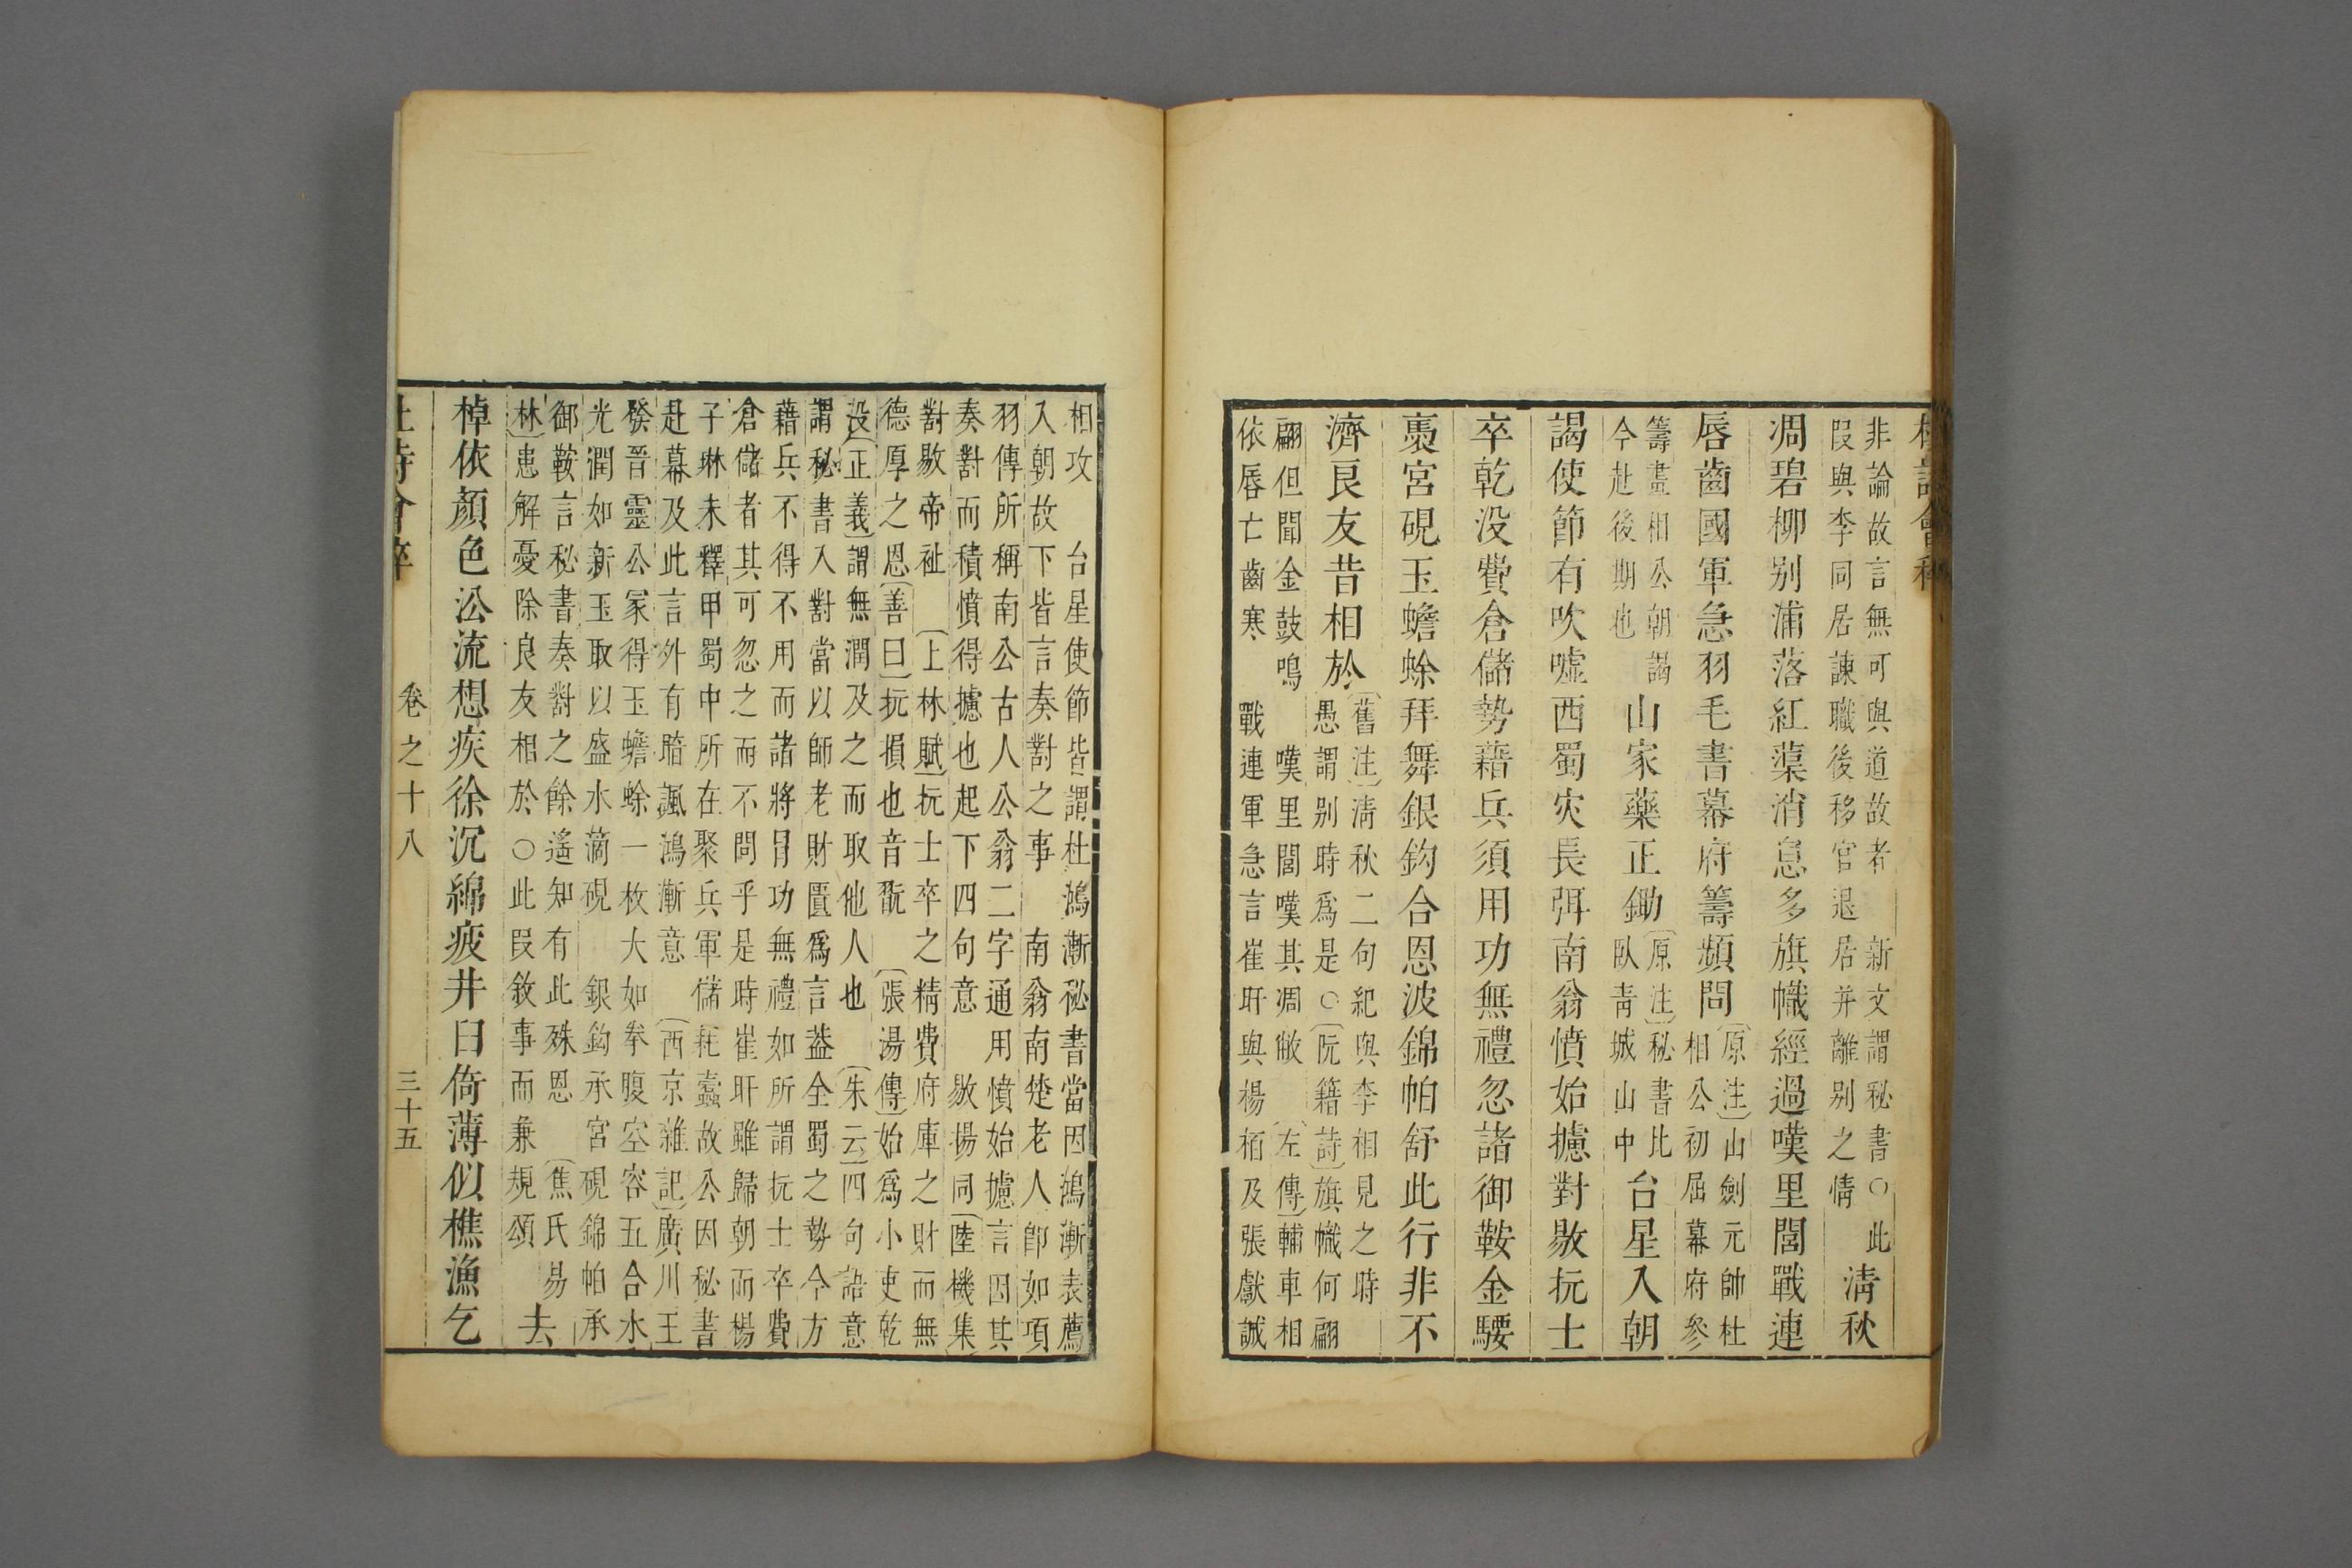 杜詩會稡
非論故言無可與道故者　新文謂秘書○此
段與李同居諫職後移官退居并離别之情
清秋
凋碧柳别浦落紅蕖消息多旗幟經過嘆里閭戰連
唇齒國軍急羽毛書幕府籌頻問
〔原注〕山劍元帥杜
相公初屈幕府參
籌畫相公朝謁
今赴後期也
山家藥正鋤
〔原注〕秘書比
臥青城山中
台星入朝
謁使節有吹噓西蜀灾長弭南翁憤始攄對敭抏士
卒乾没費倉儲勢藉兵須用功無禮忽諸御鞍金騕
褭宮硯玉蟾蜍拜舞銀鈎合恩波錦帕舒此行非不
濟良友昔相於
〔舊注〕清秋二句紀與李相見之時
愚謂别時爲是○〔阮籍詩〕旗幟何翩
翩但聞金鼓鳴　嘆里閭嘆其凋敝　〔左傳〕輔車相
依唇亡齒寒　戰連軍急言崔旰與楊栢及張獻誠
相攻　台星使節皆謂杜鴻漸秘書當因鴻漸表薦
入朝故下皆言奏對之事　南翁南楚老人卽如項
羽傳所稱南公古人公翁二字通用憤始攄言因其
奏對而積憤得攄也起下四句意　敭揚同〔陸機集〕
對敭帝祉　〔上林賦〕抏士卒之精費府庫之財而無
德厚之恩〔善曰〕抏損也音翫　〔張湯傳〕始爲小吏乾
没〔正義〕謂無潤及之而取他人也　〔朱云〕四句語意
謂秘書入對當以師老財匱爲言葢全蜀之勢今方
藉兵不得不用而諸將冒功無禮如所謂抏士卒費
倉儲者其可忽之而不問乎是時崔旰雖歸朝而楊
子琳未釋甲蜀中所在聚兵軍儲耗蠹故公因秘書
赴幕及此言外有暗諷鴻漸意　〔西京雜記〕廣川王
發晉靈公冢得玉蟾蜍一枚大如拳腹空容五合水
光潤如新玉取以盛水滴硯　銀鈎承宮硯錦帕承
御鞍言秘書奏對之餘遙知有此殊恩　〔焦氏易
林〕患解憂除良友相於○此段敘事而兼規頌
去
棹依顏色㳂流想疾徐沉綿疲井臼倚薄似樵漁乞
杜詩會稡　卷之十八　三十五